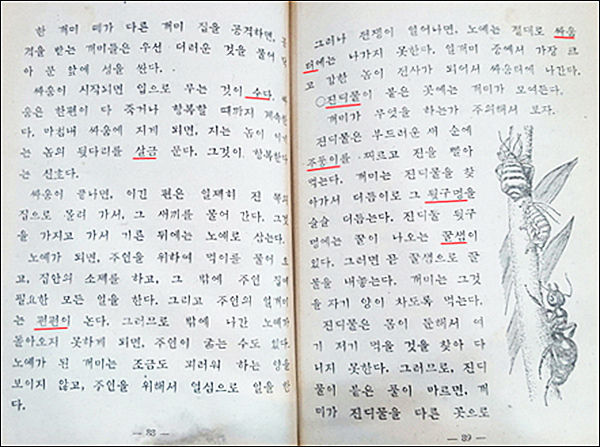 한 꺼미 떼가 다른 꺼미 집을 공격하면, 공
격을 받는 꺼미들은 우선 더러운 것을 물어
아 문 앞에 성을 싼다.
싸움이 시작되면 입으로 무는 것이 수다.
움은 한편이 다 죽거나 항복할 때까지 계속한
다. 마침내 싸움에 지게 되면, 지는 놈이 이기
는 놈의 뒷다리를 살금 문다. 그것이 항복한다
는 신호다.
싸움이 끝나면, 이긴 편은 일제히 진 쪽의
집으로 몰려 가서, 그 새끼를 물어 간다. 그것
을 가지고 가서 기른 뒤에는 노예로 삼는다.
노예가 되면, 주인을 위하여 먹이를 물어 오
고, 집안의 소제를 하고, 그 밖에 주인 집에
필요한 모든 일을 한다. 그리고 주인의 일꺼미
는 편편이 논다. 그러므로 밖에 나간 노예가
돌아오지 못하게 되면, 주인이 굶는 수도 있다.
노예가 된 꺼미는 조금도 괴러워 하는 양을
보이지 않고, 주인을 위해서 열심으로 일을 한
다.
— 83 —
그러나 전쟁이 일어나면, 노예는 절대로 싸움
터에는 나가지 못한다. 일꺼미 중에서 가장 크
고 감한 놈이 전사가 되어서 싸움터에 나간다.
○진디물이 붙은 곳에는 꺼미가 모여든다.
꺼미가 무엇을 하는가 주의해서 보자.
진디물은 부드러운 새 순에
주둥이를 찌르고 진을 빨아
먹는다. 꺼미는 진디물을 찾
아가서 더듬이로 그 뒷구멍을
슬슬 더듬는다. 진디물 뒷구
멍에는 꿀이 나오는 꿀샘이
있다. 그러면 꿀샘으로 꿀
물을 내놓는다. 꺼미는 그것
을 자기 양이 차도록 먹는다.
진디물은 몸이 둔해서 여
기 저기 먹을 것을 찾아 다
니지 못한다. 그러므로, 진디
물이 붙은 풀이 마르면, 꺼
미가 진디물을 다른 곳으로
— 89 —